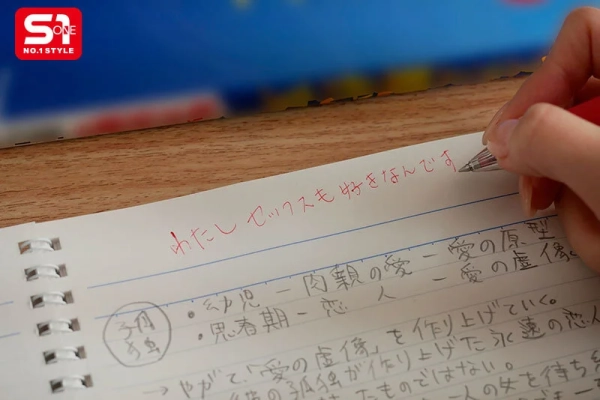 S1
ONE
NO.1 STYLE
わたしセックスも好きなんです
・幼児－肉親の愛－愛の原型
・思春期－恋人－愛の虚像。
孤独
→やがて「愛の虚像」を作り上げていく。
の孤独が作り上げた永遠の恋人
たものではない。
一人の女を待ち